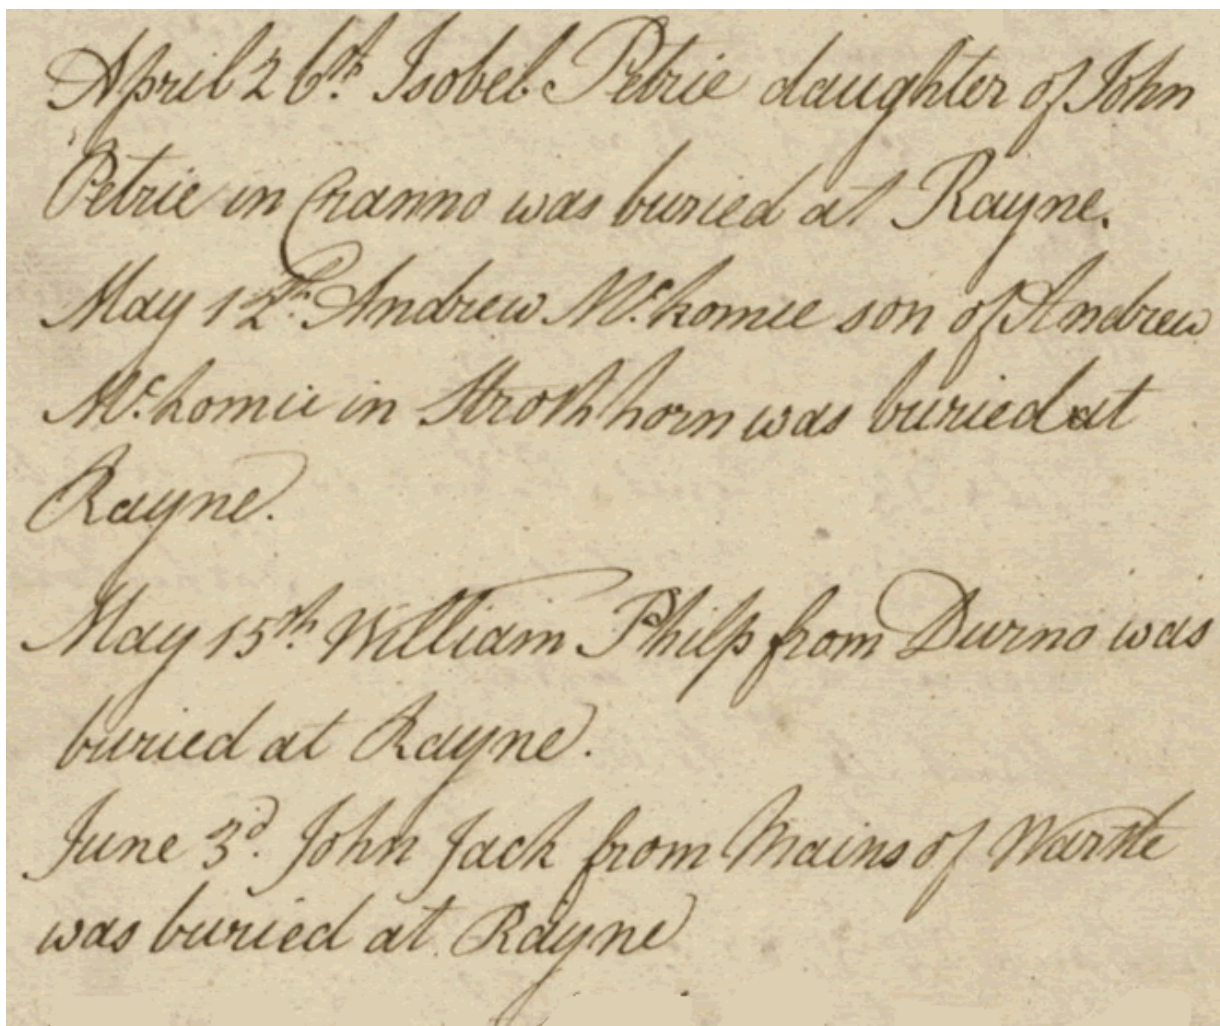 April 26th. Isobel Petrie daughter of John
Petrie in Cranno was buried at Rayne.
May 12th. Andrew Mc.homie son of Andrew
Mc.homie in Strothhorn was buried at
Rayne.
May 15th. William Philp from Durno was
buried at Rayne.
June 3d. John Jack from Mains of Warthe
was buried at Rayne